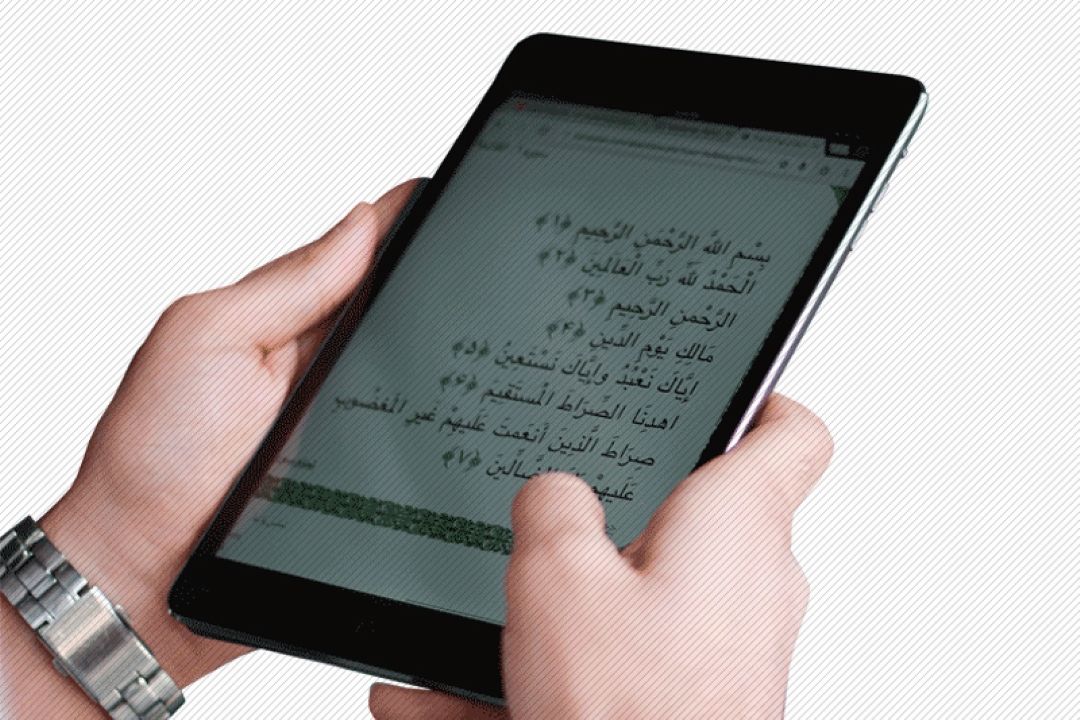 بِسْمِ اللّهِ الرَّحْمَنِ الرَّحِيمِ ﴿۱﴾
الْحَمْدُ للّهِ رَبِّ الْعَالَمِينَ ﴿۲﴾
الرَّحْمنِ الرَّحِيمِ ﴿۳﴾
مَالِكِ يَوْمِ الدِّينِ ﴿۴﴾
إِيَّاكَ نَعْبُدُ وإِيَّاكَ نَسْتَعِينُ ﴿۵﴾
اهدِنَا الصِّرَاطَ المُستَقِيمَ ﴿۶﴾
صِرَاطَ الَّذِينَ أَنعَمتَ عَلَيهِمْ غَيرِ المَغضُوبِ
عَلَيهِمْ الضَّالِّينَ ﴿۷﴾